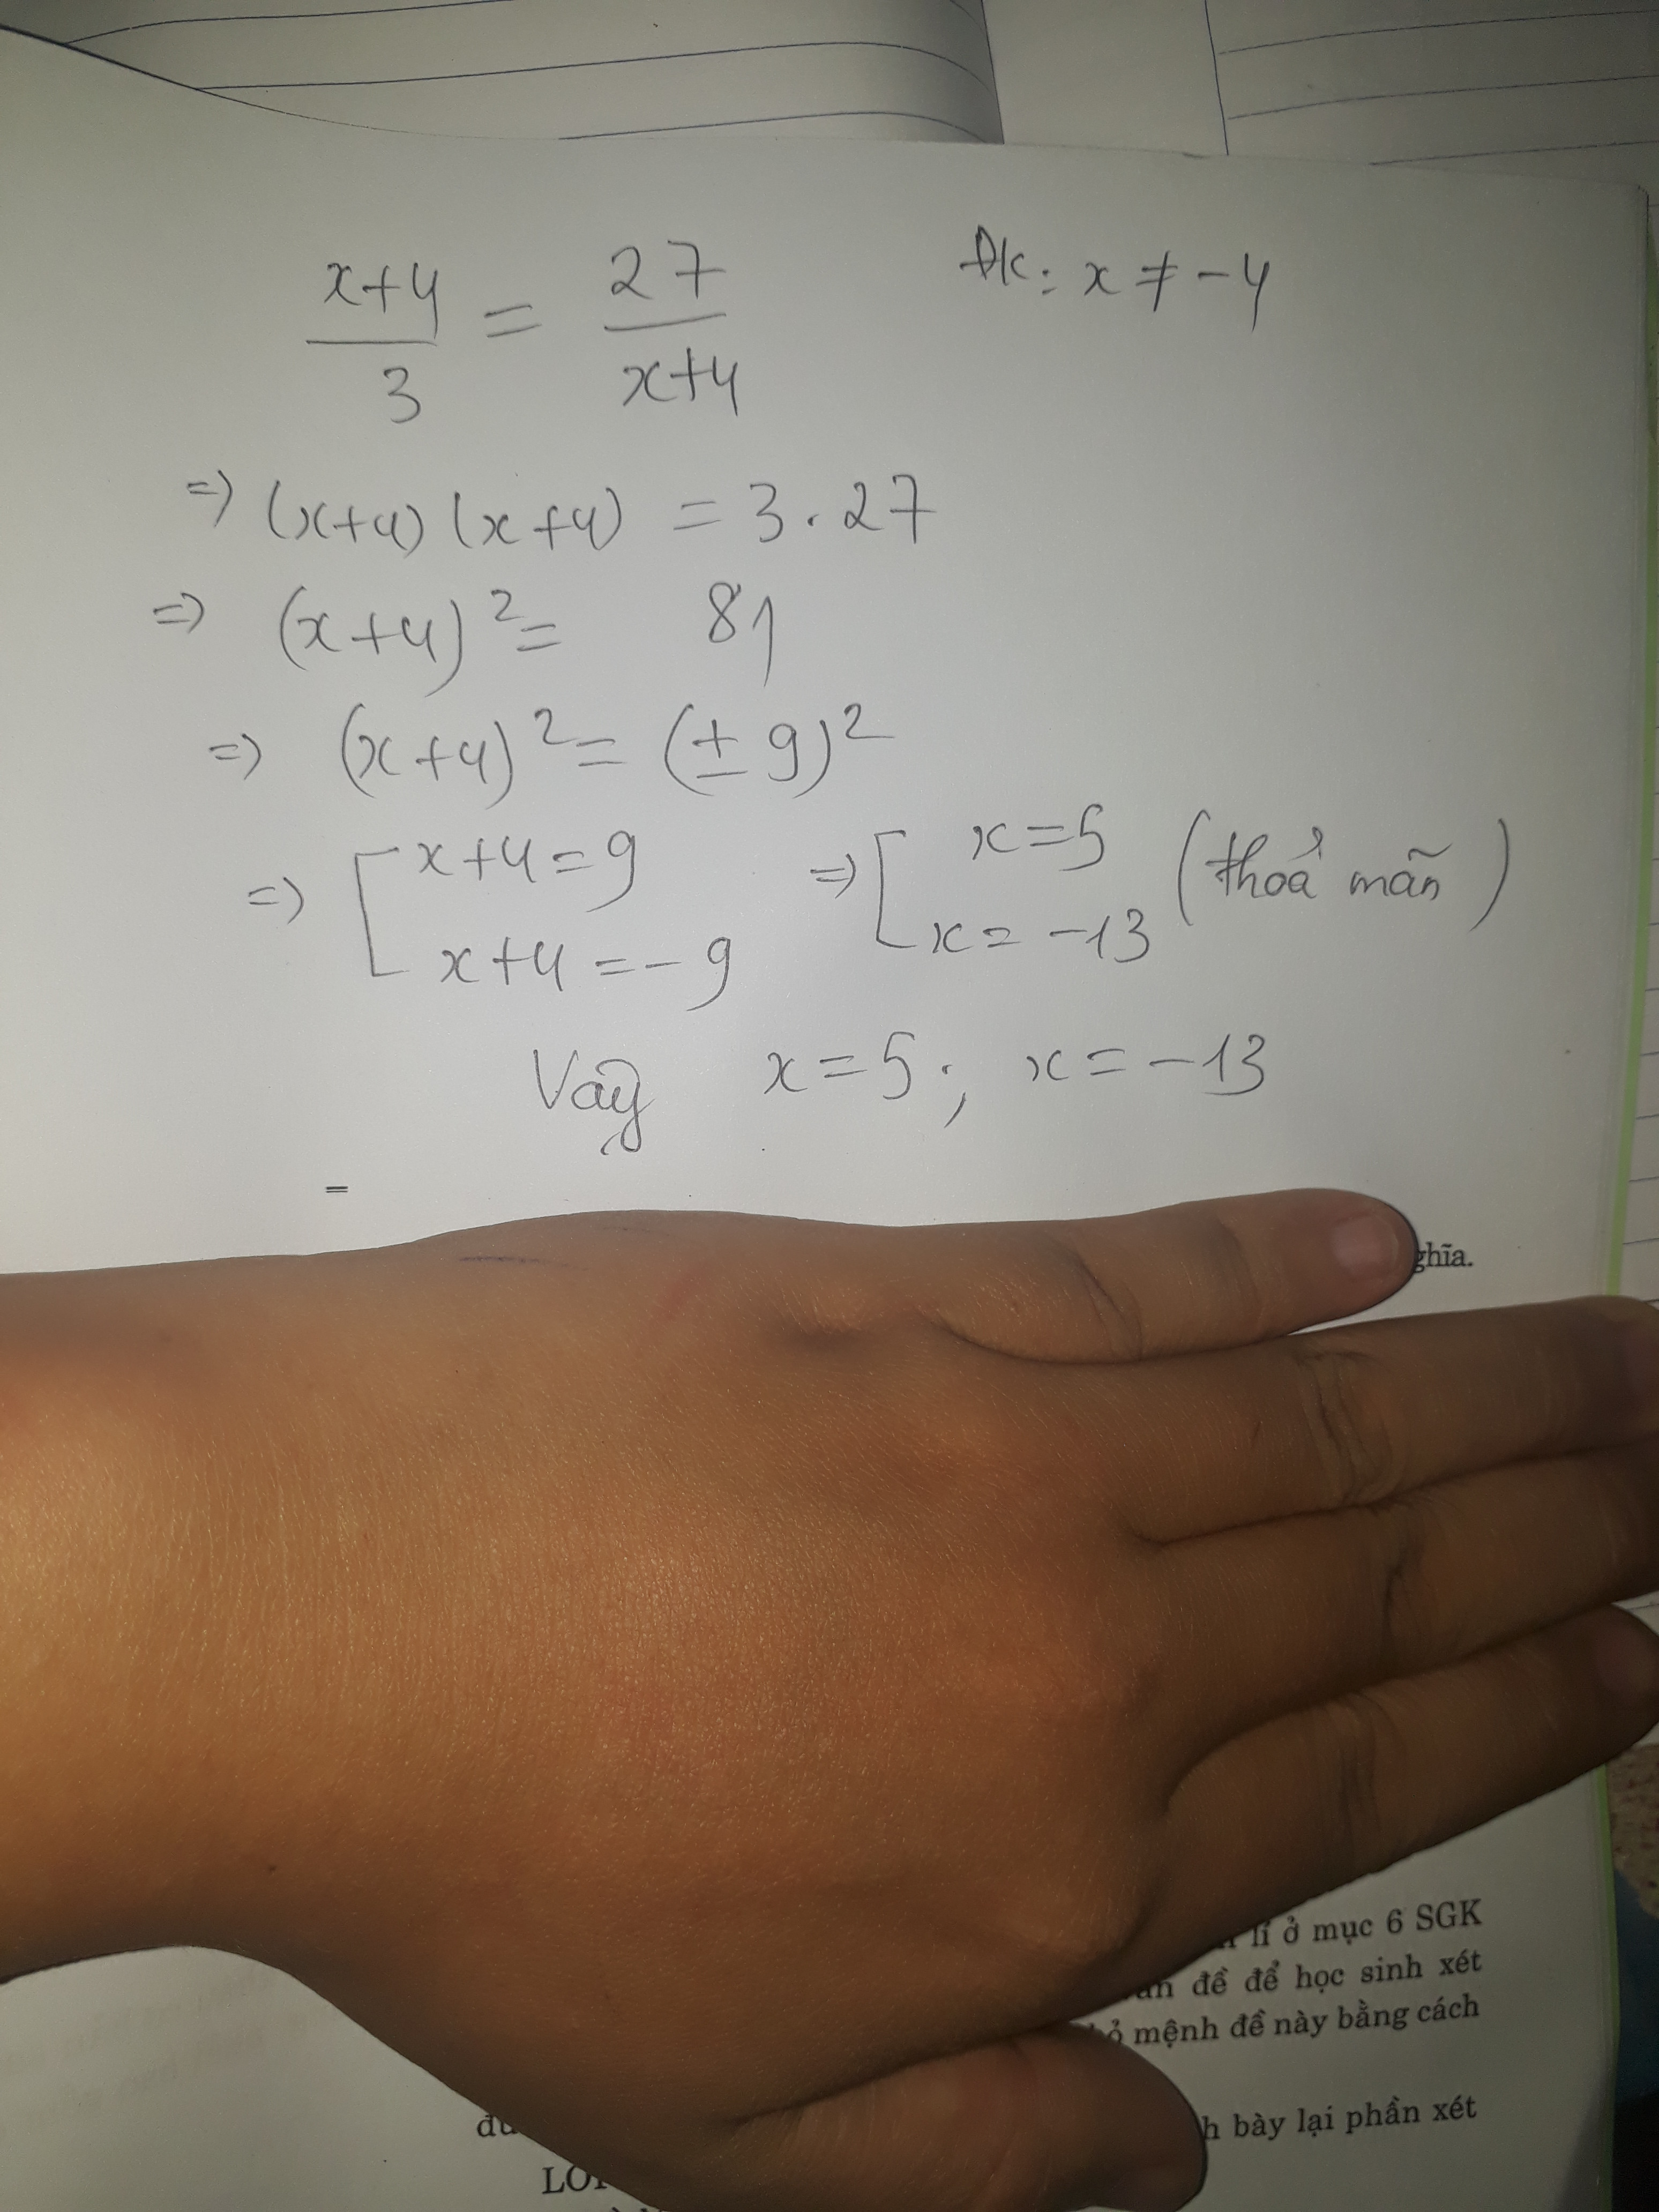 x+4/3 = 27/x+4 Đk: x ≠ -4
=> (x+4) (x+4) = 3.27
=> (x+4)² = 81
=> (x+4)² = (± 9)²
=> [ x+4 = 9 => [ x = 5 (thoả mãn)
x+4 = -9 x = -13
Vậy x = 5 ; x = -13
=
ghĩa.
lí ở mục 6 SGK
đề để học sinh xét
mệnh đề này bằng cách
bày lại phần xét